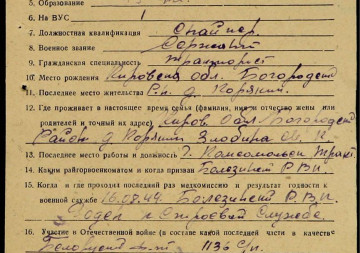 5. Образование
6. На ВУС 1
7. Должностная квалификация Снайпер.
8. Военное звание Сержант
9. Гражданская специальность Тракторист
10. Место рождения Кировская обл. Богородский
11. Последнее место жительства Р-н. д.
12. Где проживает в настоящее время семья (фамилия, имя и отчество жены или
родителей и точный их адрес) Киров. Обл. Богородск
Район д. Злобина
13. Последнее место работы и должность Комсомолец тракт.
14. Каким райгорвоенкоматом и когда призван Болезинский Р.В.К.
15. Когда и где проходил последний раз медкомиссию и результат годности к
военной службе 16.08.44. Болезинский Р.В.К.
Годен к строевой службе.
16. Участие в Отечественной войне (в составе какой последней части в качестве
1136 с/п.